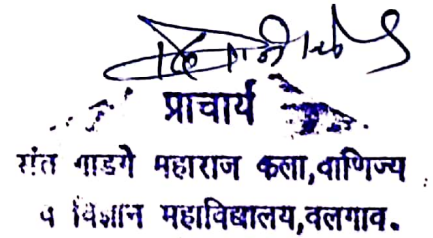 प्राचार्य
संत गाडगे महाराज कला,वाणिज्य
व विज्ञान महाविद्यालय,वलगाव.